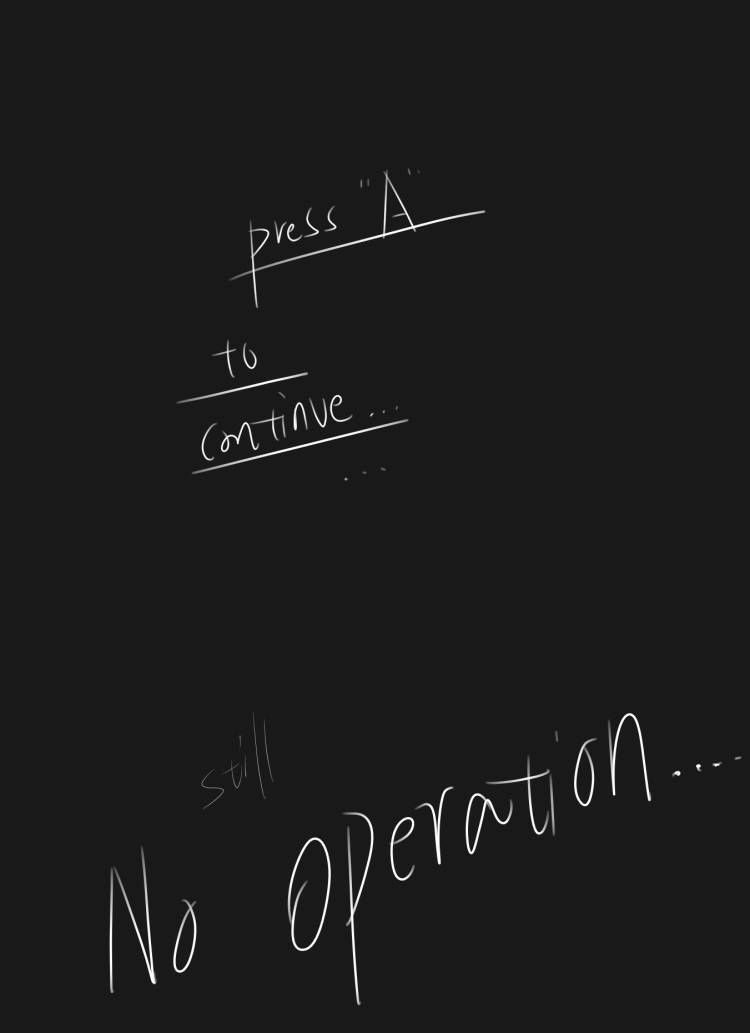 press "A"
to
continue...
...
still
No operation.....